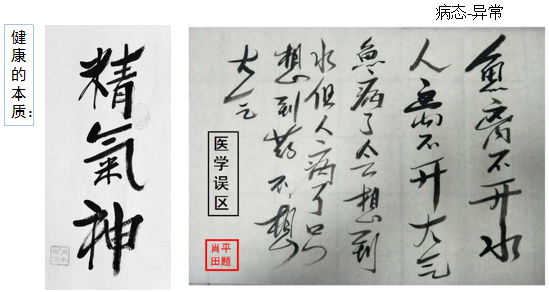 健康的本质：
精氣神
病态-异常
魚离不开水
人离不开大气
魚病了会想到
水但人病了只
想到药不想
大气
医学误区
肖平
田题